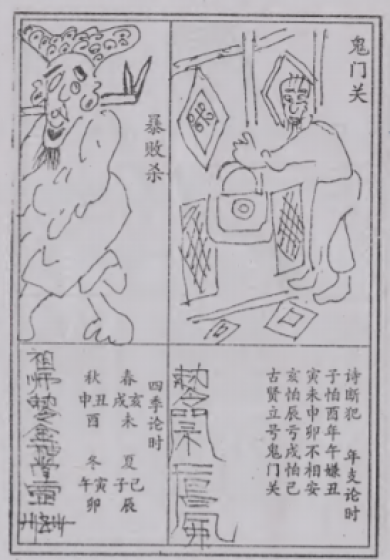 鬼门关
暴败杀
诗断犯 年支论时
子怕酉年午嫌丑
寅未申卯不相安
亥怕辰亏戌怕己
古贤立号鬼门关
四季论时
春亥戌未 夏己子辰
秋丑申酉 冬寅午卯